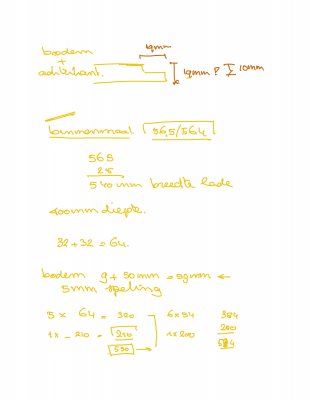 19mm
bodem
+
achterkant.
19mm ? 10mm
binnenmaat. 56,5/56,4
565
25
540mm breedte lade
400mm diepte.
32+32 = 64.
bodem 9 + 50mm = 59mm ←
5mm speling
5 x 64 = 320 6 x 64 384
1x - 210 = 210 1x 200 200
530 584